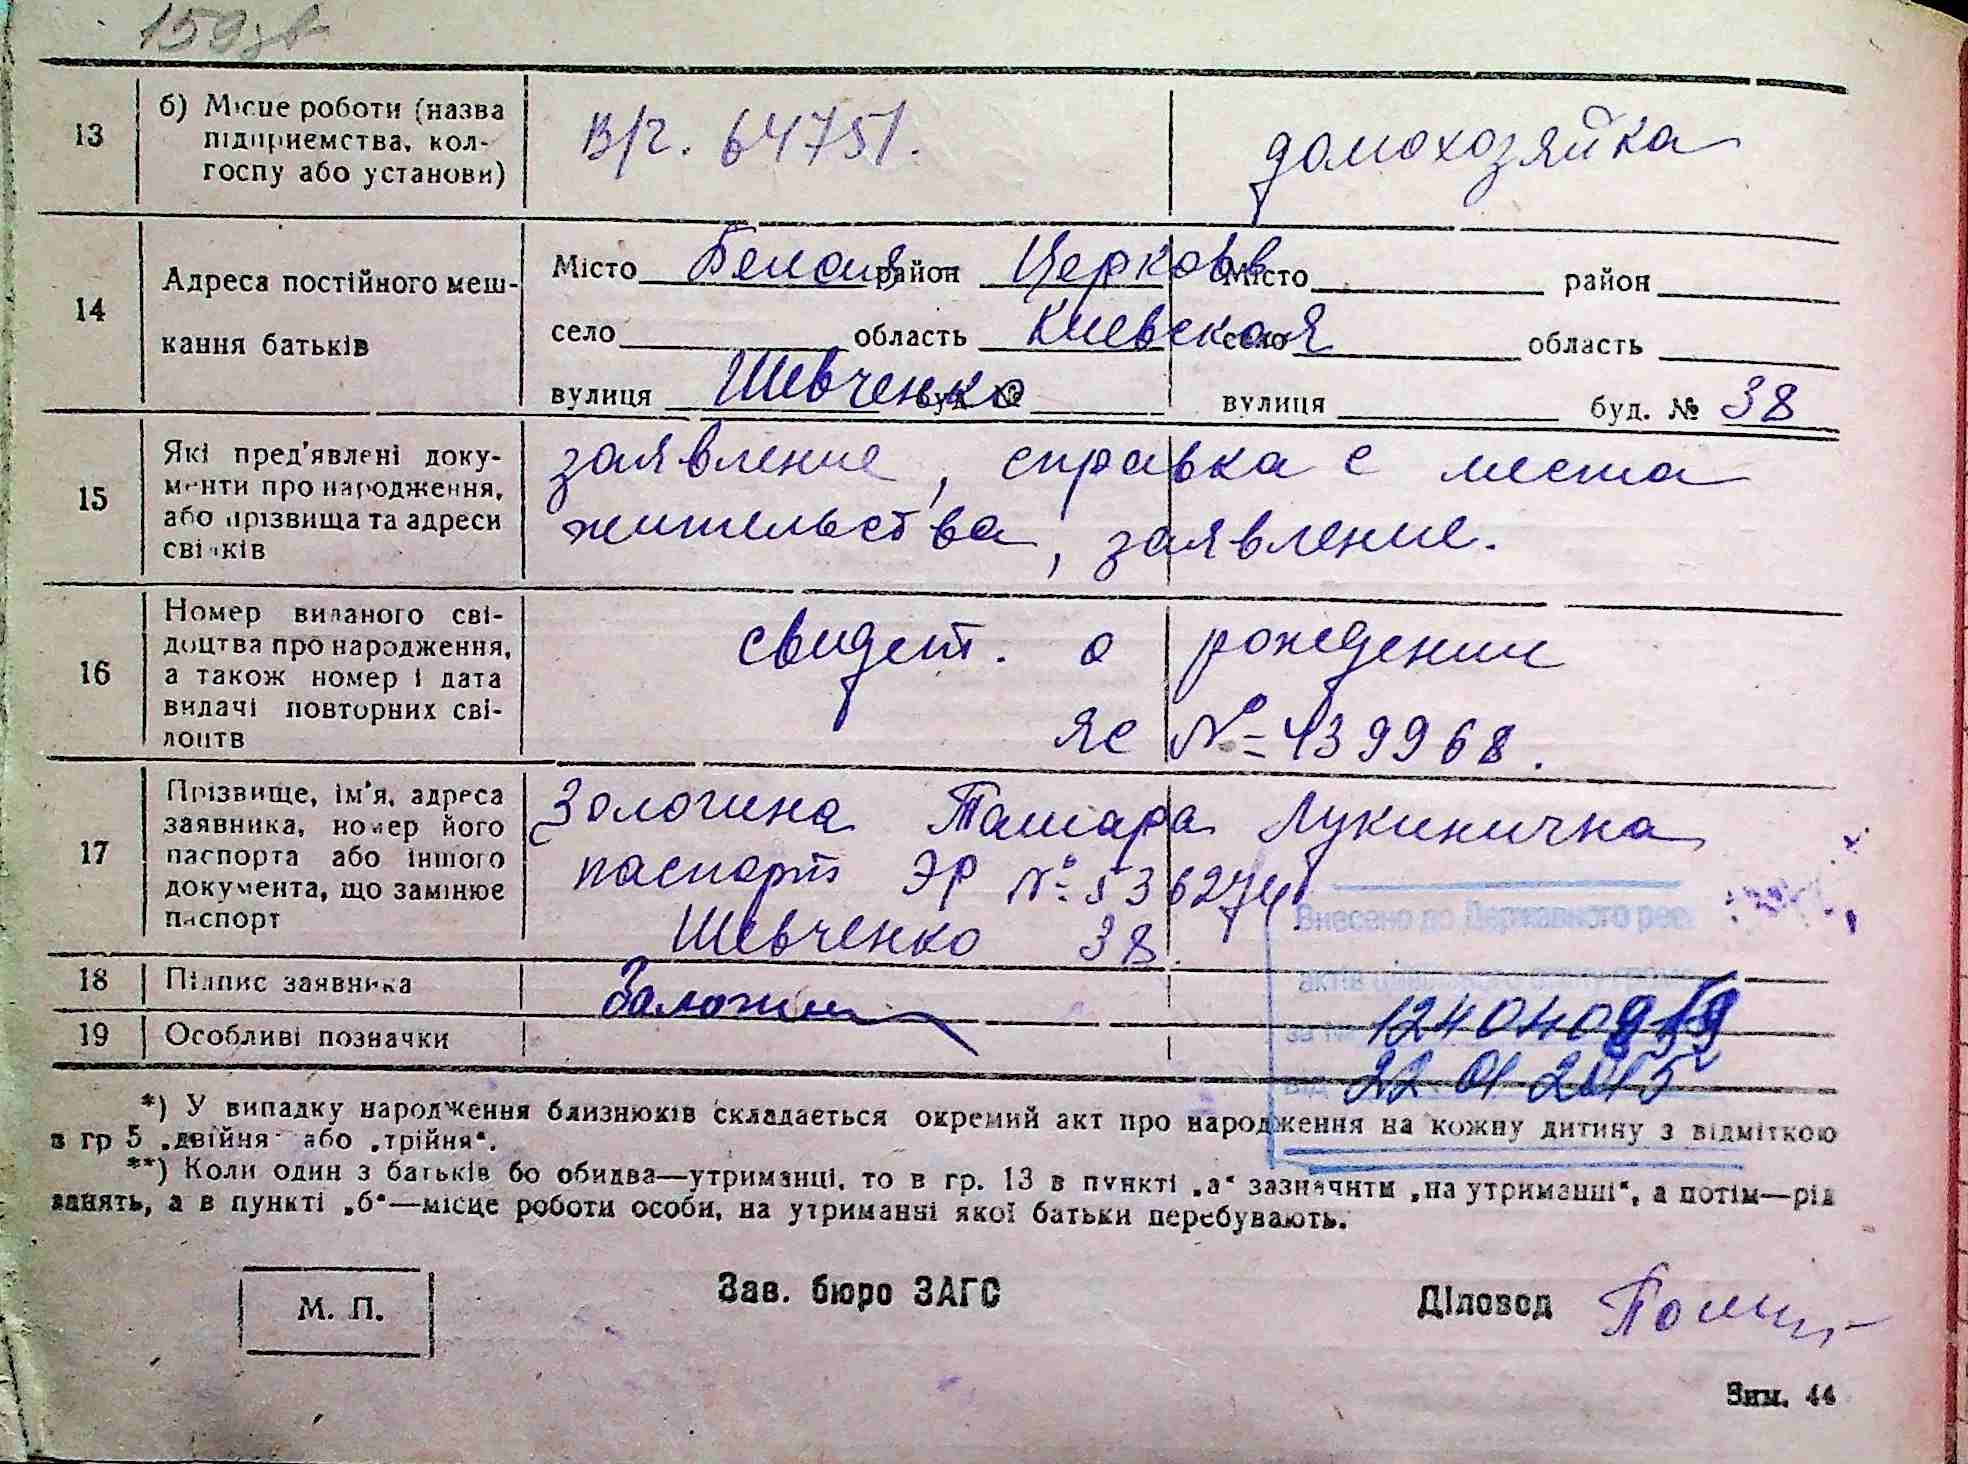 159зв
13
б) Місце роботи (назва
підприємства, кол-
госпу або установи)
В/ч. 64751.
домохозяйка
14
Адреса постійного меш-
кання батьків
Місто Белая район Церковь Місто район
село область Киевская село область
вулиця Шевченко буд. № вулиця буд. № 38
15
Які пред'явлені доку-
менти про народження,
або прізвища та адреси
свідків
заявление, справка с места
жительства, заявление.
16
Номер виданого сві-
доцтва про народження,
а також номер і дата
видачі повторних сві-
доцтв
свидет. о рождении
ЯС № 439968.
17
Прізвище, ім'я, адреса
заявника, номер його
паспорта або іншого
документа, що замінює
паспорт
Тамара Лукинична
паспорт ЭР № 536274
Шевченко 38.
Внесено до Державного реє
актів цивільного стану
за №
від 22 01 2015
18
Підпис заявника
19
Особливі позначки
*) У випадку народження близнюків складається окремий акт про народження на кожну дитину з відміткою
в гр 5 „двійня" або „трійня".
**) Коли один з батьків бо обидва—утриманці, то в гр. 13 в пункті „а" зазначити „на утриманні", а потім—рід
занять, а в пункті „б"—місце роботи особи, на утриманні якої батьки перебувають.
М. П.
Зав. бюро ЗАГС
Діловод
Зим. 44